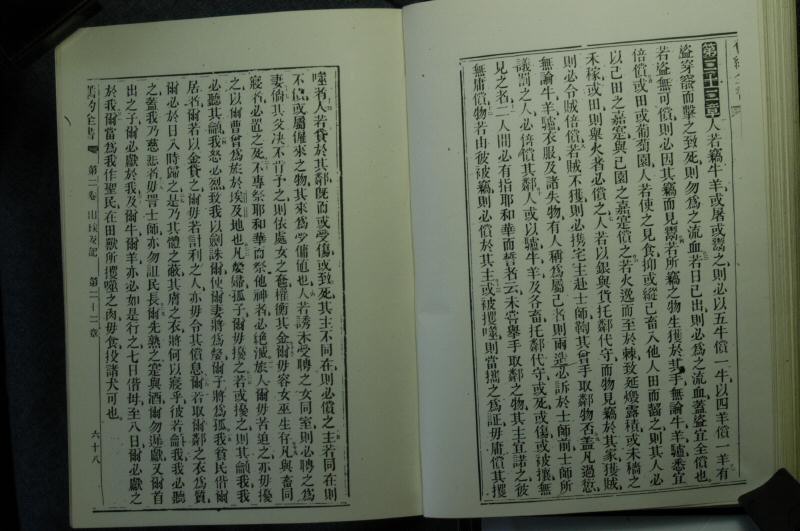 第二十二章 人若竊牛羊或屠或鬻之則必以五牛償一牛以四羊償一羊有
盜穿窬而擊之致死則勿為之流血若日已出則必為之流血蓋盜宜全償也
若盜無可償則必因其竊而見鬻若所竊之物生獲於其手無論牛羊驢悉宜
倍償或田或葡萄園人若使之見食抑或縱己畜入他人田而齧之則其人必
以己田之嘉寔與己園之嘉寔償之若火逸而至於棘致延燬露積或未穡之
禾稼或田則舉火者必償之人若以銀與貨托鄰代守而物見竊於其家獲賊
則必令賊倍償若賊不獲則必携宅主赴士師鞫其曾手取鄰物否蓋凡過愆
無論牛羊驢衣服及諸失物有人稱為屬己者則兩造必訴於士師前士師所
議罰之人必倍償其鄰人或以驢牛羊及各畜托鄰代守或死或傷或被攘無
見之者二人間必有指耶和華而誓者云未嘗舉手取鄰之物其主宜諾之彼
無庸償物若由彼被竊則必償於其主或被攫噬則當攜之為証毋庸償其攫
噬者人若貸於其鄰既而或受傷或致死其主不同在則必償之主若同在則
不償或屬僱來之物其來為受傭值也人若誘未受聘之女同室則必聘之為
妻倘其父決不肯予之則依處女之奩權衡其金爾毋容女巫生有凡與畜同
寢者必置之死不專祭耶和華而祭他神者必絕滅旅人爾毋若迫之亦毋擾
之以爾曹曾為旅於埃及地也凡嫠婦孤子爾毋擾之若或擾之則其龥我我
必聽其龥我怒必烈致我以劍誅爾使爾妻將為嫠爾子將為孤我貧民偕爾
居者爾若以金貸之爾毋若計利之人亦毋令其償息爾若取爾鄰之衣為質
爾必於日入時歸之是乃其體之蔽其膚之衣將何以寢乎彼若龥我我必聽
之蓋我乃慈悲者毋詈士師亦勿詛民長爾先熟之寔與酒爾勿遲獻又爾首
出之子爾必獻於我及爾牛爾羊亦必如是行之七日偕母至八日爾必獻之
於我爾當為我作聖民在田獸所攫噬之肉毋食投諸犬可也
舊約全書 第二卷 出埃及記 第二十二章 六十八